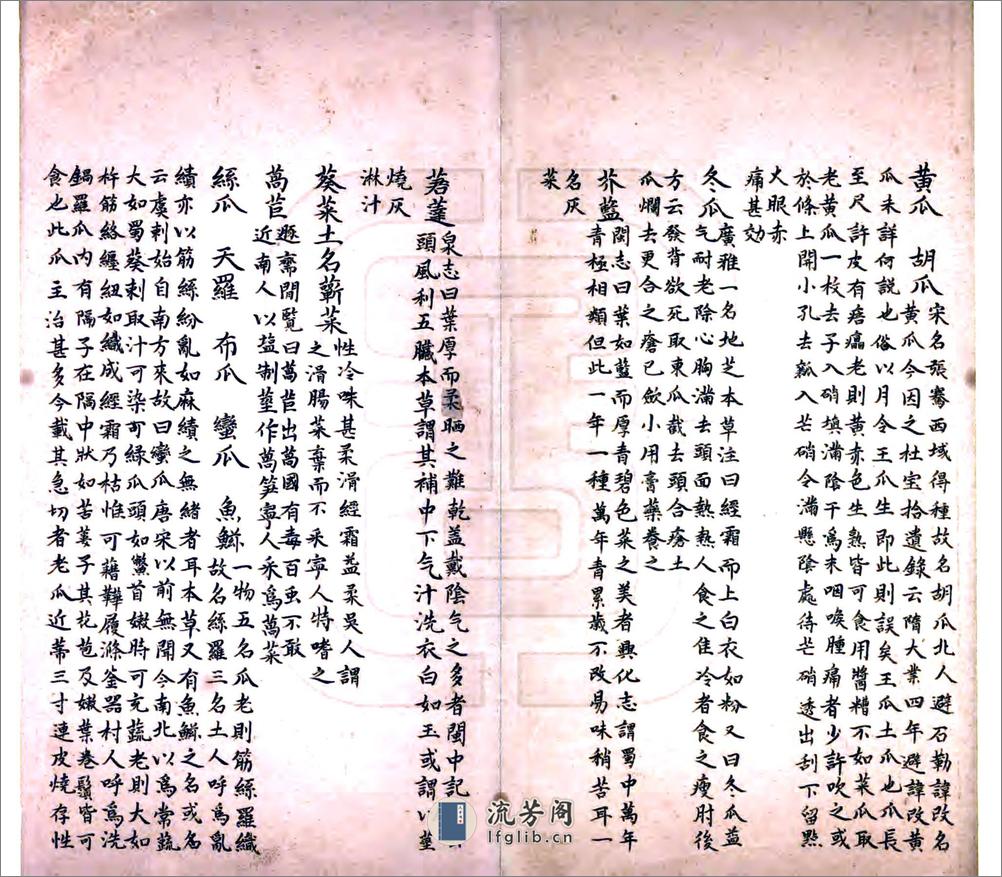 黄瓜　胡瓜宋名張騫西域得種故名胡瓜北人避石勒諱改名
黄瓜今因之杜宝拾遺錄云隋大業四年避諱改黄
瓜未詳何説也俗以月令王瓜生即此則誤矣王瓜土瓜也瓜長
至尺許皮有痦㿔老則黄赤色生熟皆可食用醬糟不如菜瓜取
老黄瓜一枚去子入硝填滿陰干為末咽喉腫痛者少許吹之或
於條上開小孔去瓤入芒硝令滿懸陰處待芒硝透出刮下留點
火眼赤
痛甚効
冬瓜廣雅一名地芝本草注曰經霜而上白衣如粉又曰冬瓜益
气耐老除心胸滿去頭面熱熱人食之佳冷者食之瘦肘後
方云發背欲死取東瓜截去頭合瘡上
瓜爛去更合之瘡已斂小用膏藥養之
芥藍閩志曰葉如藍而厚青碧色菜之美者興化志謂蜀中萬年
青極相類但此一年一種萬年青累歲不改易味稍苦耳一
名灰
菜
莙蓬泉志曰葉厚而柔晒之難乾盖戴陰气之多者閩中記
頭風利五臓本草謂其補中下气汁洗衣白如玉或謂以莖
燒灰
淋汁
葵菜土名蘄菜性冷味甚柔滑經霜益柔吳人謂
之滑腸菜棄而不采寧人特嗜之
萵苣遯齋閒覧曰萵苣出萵國有毒百虫不敢
近南人以盐制莖作萵笋寧人采為萵菜
絲瓜　天羅　布瓜　蠻瓜　魚鰦一物五名瓜老則筋絲羅織
故名絲羅三名土人呼為亂
績亦以筋絲紛亂如麻績之無緒者耳本草又有魚鰦之名或名
云虞刺始自南方來故曰蠻瓜唐宋以前無聞今南北以為常蔬
大如蜀葵刺取汁可染可緑瓜頭如鱉首嫩時可充蔬老則大如
杵筋絡纏紐如織成經霜乃枯惟可藉鞾履滌釜器村人呼為洗
鍋羅瓜内有隔子在隔中狀如苦蔞子其花苞及嫩葉巻鬚皆可
食也此瓜主治甚多今載其急切者老瓜近蒂三寸連皮燒存性
流芳阁
lfglib.cn